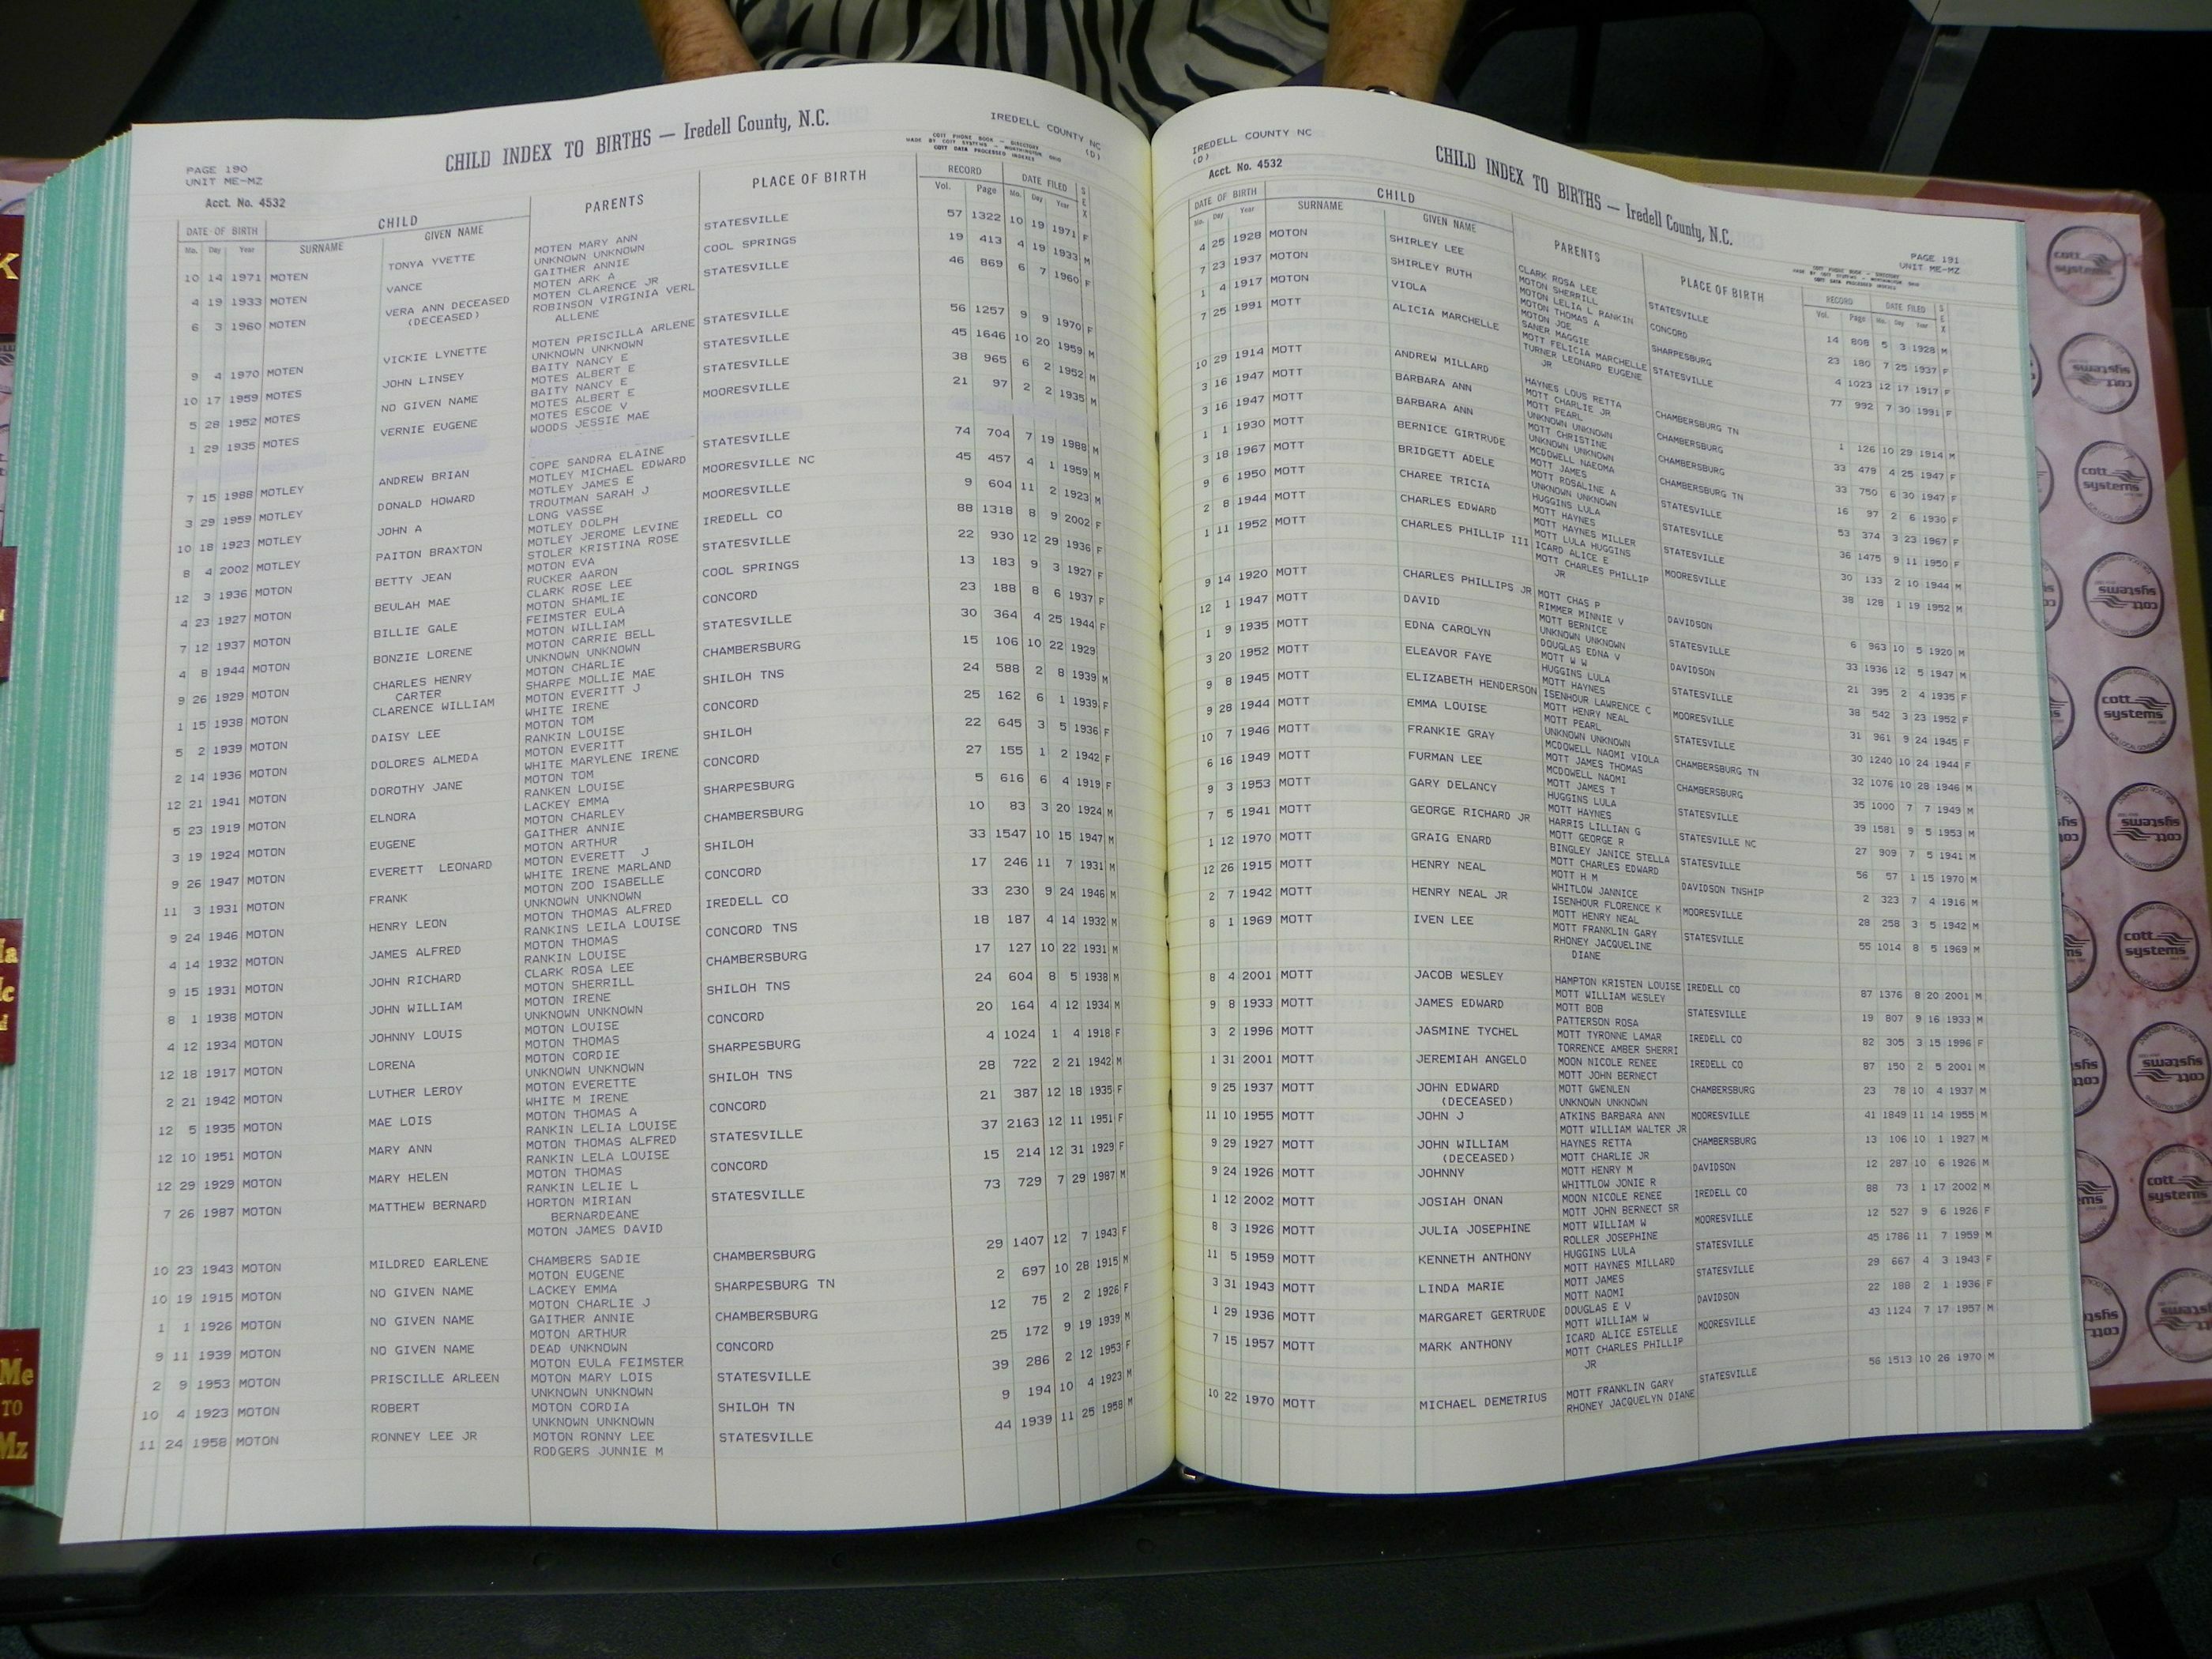 PAGE 190
UNIT ME-MZ
Acct. No. 4532
CHILD INDEX TO BIRTHS — Iredell County, N.C.
IREDELL COUNTY NC
(D)
COTT PHONE BOOK - DIRECTORY
MADE BY COTT SYSTEMS - WORTHINGTON, OHIO
COTT DATA PROCESSED INDEXES
DATE OF BIRTH CHILD PARENTS PLACE OF BIRTH RECORD DATE FILED SEX
Mo. Day Year SURNAME GIVEN NAME Vol. Page Mo. Day Year
10 14 1971 MOTEN TONYA YVETTE MOTEN MARY ANN STATESVILLE 57 1322 10 19 1971 F
UNKNOWN UNKNOWN
4 19 1933 MOTEN VANCE GAITHER ANNIE COOL SPRINGS 19 413 4 19 1933 M
MOTEN ARK A
6 3 1960 MOTEN VERA ANN DECEASED MOTEN CLARENCE JR STATESVILLE 46 869 6 7 1960 F
(DECEASED) ROBINSON VIRGINIA VERL
ALLENE
9 4 1970 MOTEN VICKIE LYNETTE MOTEN PRISCILLA ARLENE STATESVILLE 56 1257 9 9 1970 F
UNKNOWN UNKNOWN
10 17 1959 MOTES JOHN LINSEY BAITY NANCY E STATESVILLE 45 1646 10 20 1959 M
MOTES ALBERT E
5 28 1952 MOTES NO GIVEN NAME BAITY NANCY E STATESVILLE 38 965 6 2 1952 M
MOTES ALBERT E
1 29 1935 MOTES VERNIE EUGENE MOTES ESCOE V MOORESVILLE 21 97 2 2 1935 M
WOODS JESSIE MAE
7 15 1988 MOTLEY ANDREW BRIAN COPE SANDRA ELAINE STATESVILLE 74 704 7 19 1988 M
MOTLEY MICHAEL EDWARD
3 29 1959 MOTLEY DONALD HOWARD MOTLEY JAMES E MOORESVILLE NC 45 457 4 1 1959 M
TROUTMAN SARAH J
10 18 1923 MOTLEY JOHN A LONG VASSE MOORESVILLE 9 604 11 2 1923 M
MOTLEY DOLPH
8 4 2002 MOTLEY PAITON BRAXTON MOTLEY JEROME LEVINE IREDELL CO 88 1318 8 9 2002 F
STOLER KRISTINA ROSE
12 3 1936 MOTON BETTY JEAN MOTON EVA STATESVILLE 22 930 12 29 1936 F
RUCKER AARON
4 23 1927 MOTON BEULAH MAE CLARK ROSE LEE COOL SPRINGS 13 183 9 3 1927 F
MOTON SHAMLIE
7 12 1937 MOTON BILLIE GALE FEIMSTER EULA CONCORD 23 188 8 6 1937 F
MOTON WILLIAM
4 8 1944 MOTON BONZIE LORENE MOTON CARRIE BELL STATESVILLE 30 364 4 25 1944 F
UNKNOWN UNKNOWN
9 26 1929 MOTON CHARLES HENRY MOTON CHARLIE CHAMBERSBURG 15 106 10 22 1929
CARTER SHARPE MOLLIE MAE
1 15 1938 MOTON CLARENCE WILLIAM MOTON EVERITT J SHILOH TNS 24 588 2 8 1939 M
WHITE IRENE
5 2 1939 MOTON DAISY LEE MOTON TOM CONCORD 25 162 6 1 1939 F
RANKIN LOUISE
2 14 1936 MOTON DOLORES ALMEDA MOTON EVERITT SHILOH 22 645 3 5 1936 F
WHITE MARYLENE IRENE
12 21 1941 MOTON DOROTHY JANE MOTON TOM CONCORD 27 155 1 2 1942 F
RANKEN LOUISE
5 23 1919 MOTON ELNORA LACKEY EMMA SHARPESBURG 5 616 6 4 1919 F
MOTON CHARLEY
3 19 1924 MOTON EUGENE GAITHER ANNIE CHAMBERSBURG 10 83 3 20 1924 M
MOTON ARTHUR
9 26 1947 MOTON EVERETT LEONARD MOTON EVERETT J SHILOH 33 1547 10 15 1947 M
WHITE IRENE MARLAND
11 3 1931 MOTON FRANK MOTON ZOO ISABELLE CONCORD 17 246 11 7 1931 M
UNKNOWN UNKNOWN
9 24 1946 MOTON HENRY LEON MOTON THOMAS ALFRED IREDELL CO 33 230 9 24 1946 M
RANKINS LEILA LOUISE
4 14 1932 MOTON JAMES ALFRED MOTON THOMAS CONCORD TNS 18 187 4 14 1932 M
RANKIN LOUISE
9 15 1931 MOTON JOHN RICHARD CLARK ROSA LEE CHAMBERSBURG 17 127 10 22 1931 M
MOTON SHERRILL
8 1 1938 MOTON JOHN WILLIAM MOTON IRENE SHILOH TNS 24 604 8 5 1938 M
UNKNOWN UNKNOWN
4 12 1934 MOTON JOHNNY LOUIS MOTON LOUISE CONCORD 20 164 4 12 1934 M
MOTON THOMAS
12 18 1917 MOTON LORENA MOTON CORDIE SHARPESBURG 4 1024 1 4 1918 F
UNKNOWN UNKNOWN
2 21 1942 MOTON LUTHER LEROY MOTON EVERETTE SHILOH TNS 28 722 2 21 1942 M
WHITE M IRENE
12 5 1935 MOTON MAE LOIS MOTON THOMAS A CONCORD 21 387 12 18 1935 F
RANKIN LELIA LOUISE
12 10 1951 MOTON MARY ANN MOTON THOMAS ALFRED STATESVILLE 37 2163 12 11 1951 F
RANKIN LELA LOUISE
12 29 1929 MOTON MARY HELEN MOTON THOMAS CONCORD 15 214 12 31 1929 F
RANKIN LELIE L
7 26 1987 MOTON MATTHEW BERNARD HORTON MIRIAN STATESVILLE 73 729 7 29 1987 M
BERNARDEANE
MOTON JAMES DAVID
10 23 1943 MOTON MILDRED EARLENE CHAMBERS SADIE CHAMBERSBURG 29 1407 12 7 1943 F
MOTON EUGENE
10 19 1915 MOTON NO GIVEN NAME LACKEY EMMA SHARPESBURG TN 2 697 10 28 1915 M
MOTON CHARLIE J
1 1 1926 MOTON NO GIVEN NAME GAITHER ANNIE CHAMBERSBURG 12 75 2 2 1926 F
MOTON ARTHUR
9 11 1939 MOTON NO GIVEN NAME DEAD UNKNOWN CONCORD 25 172 9 19 1939 M
MOTON EULA FEIMSTER
2 9 1953 MOTON PRISCILLE ARLEEN MOTON MARY LOIS STATESVILLE 39 286 2 12 1953 F
UNKNOWN UNKNOWN
10 4 1923 MOTON ROBERT MOTON CORDIA SHILOH TN 9 194 10 4 1923 M
UNKNOWN UNKNOWN
11 24 1958 MOTON RONNEY LEE JR MOTON RONNY LEE STATESVILLE 44 1939 11 25 1958 M
RODGERS JUNNIE M
IREDELL COUNTY NC
(D)
Acct. No. 4532
CHILD INDEX TO BIRTHS — Iredell County, N.C.
PAGE 191
UNIT ME-MZ
COTT PHONE BOOK - DIRECTORY
MADE BY COTT SYSTEMS - WORTHINGTON, OHIO
COTT DATA PROCESSED INDEXES
DATE OF BIRTH CHILD PARENTS PLACE OF BIRTH RECORD DATE FILED SEX
Mo. Day Year SURNAME GIVEN NAME Vol. Page Mo. Day Year
4 25 1928 MOTON SHIRLEY LEE CLARK ROSA LEE STATESVILLE 14 808 5 3 1928 M
MOTON SHERRILL
7 23 1937 MOTON SHIRLEY RUTH MOTON LELIA L RANKIN CONCORD 23 180 7 25 1937 F
MOTON THOMAS A
1 4 1917 MOTON VIOLA MOTON JOE SHARPESBURG 4 1023 12 17 1917 F
SANER MAGGIE
7 25 1991 MOTT ALICIA MARCHELLE MOTT FELICIA MARCHELLE STATESVILLE 77 992 7 30 1991 F
TURNER LEONARD EUGENE
JR
10 29 1914 MOTT ANDREW MILLARD HAYNES LOUS RETTA CHAMBERSBURG TN 1 126 10 29 1914 M
MOTT CHARLIE JR
3 16 1947 MOTT BARBARA ANN MOTT PEARL CHAMBERSBURG 33 479 4 25 1947 F
UNKNOWN UNKNOWN
3 16 1947 MOTT BARBARA ANN MOTT CHRISTINE CHAMBERSBURG 33 750 6 30 1947 F
UNKNOWN UNKNOWN
1 1 1930 MOTT BERNICE GIRTRUDE MCDOWELL NAEOMA CHAMBERSBURG TN 16 97 2 6 1930 F
MOTT JAMES
3 18 1967 MOTT BRIDGETT ADELE MOTT ROSALINE A STATESVILLE 53 374 3 23 1967 F
UNKNOWN UNKNOWN
9 6 1950 MOTT CHAREE TRICIA HUGGINS LULA STATESVILLE 36 1475 9 11 1950 F
MOTT HAYNES
2 8 1944 MOTT CHARLES EDWARD MOTT HAYNES MILLER STATESVILLE 30 133 2 10 1944 M
MOTT LULA HUGGINS
1 11 1952 MOTT CHARLES PHILLIP III ICARD ALICE E MOORESVILLE 38 128 1 19 1952 M
MOTT CHARLES PHILLIP
JR
9 14 1920 MOTT CHARLES PHILLIPS JR MOTT CHAS P DAVIDSON 6 963 10 5 1920 M
RIMMER MINNIE V
12 1 1947 MOTT DAVID MOTT BERNICE STATESVILLE 33 1936 12 5 1947 M
UNKNOWN UNKNOWN
1 9 1935 MOTT EDNA CAROLYN DOUGLAS EDNA V DAVIDSON 21 395 2 4 1935 F
MOTT W W
3 20 1952 MOTT ELEAVOR FAYE HUGGINS LULA STATESVILLE 38 542 3 23 1952 F
MOTT HAYNES
9 8 1945 MOTT ELIZABETH HENDERSON ISENHOUR LAWRENCE C MOORESVILLE 31 961 9 24 1945 F
MOTT HENRY NEAL
9 28 1944 MOTT EMMA LOUISE MOTT PEARL STATESVILLE 30 1240 10 24 1944 F
UNKNOWN UNKNOWN
10 7 1946 MOTT FRANKIE GRAY MCDOWELL NAOMI VIOLA CHAMBERSBURG TN 32 1076 10 28 1946 M
MOTT JAMES THOMAS
6 16 1949 MOTT FURMAN LEE MCDOWELL NAOMI CHAMBERSBURG 35 1000 7 7 1949 M
MOTT JAMES T
9 3 1953 MOTT GARY DELANCY HUGGINS LULA STATESVILLE 39 1581 9 5 1953 M
MOTT HAYNES
7 5 1941 MOTT GEORGE RICHARD JR HARRIS LILLIAN G STATESVILLE NC 27 909 7 5 1941 M
MOTT GEORGE R
1 12 1970 MOTT GRAIG ENARD BINGLEY JANICE STELLA STATESVILLE 56 57 1 15 1970 M
MOTT CHARLES EDWARD
12 26 1915 MOTT HENRY NEAL MOTT H M DAVIDSON TNSHIP 2 323 7 4 1916 M
WHITLOW JANNICE
2 7 1942 MOTT HENRY NEAL JR ISENHOUR FLORENCE K MOORESVILLE 28 258 3 5 1942 M
MOTT HENRY NEAL
8 1 1969 MOTT IVEN LEE MOTT FRANKLIN GARY STATESVILLE 55 1014 8 5 1969 M
RHONEY JACQUELINE
DIANE
8 4 2001 MOTT JACOB WESLEY HAMPTON KRISTEN LOUISE IREDELL CO 87 1376 8 20 2001 M
MOTT WILLIAM WESLEY
9 8 1933 MOTT JAMES EDWARD MOTT BOB STATESVILLE 19 807 9 16 1933 M
PATTERSON ROSA
3 2 1996 MOTT JASMINE TYCHEL MOTT TYRONNE LAMAR IREDELL CO 82 305 3 15 1996 F
TORRENCE AMBER SHERRI
1 31 2001 MOTT JEREMIAH ANGELO MOON NICOLE RENEE IREDELL CO 87 150 2 5 2001 M
MOTT JOHN BERNECT
9 25 1937 MOTT JOHN EDWARD MOTT GWENLEN CHAMBERSBURG 23 78 10 4 1937 M
(DECEASED) UNKNOWN UNKNOWN
11 10 1955 MOTT JOHN J ATKINS BARBARA ANN MOORESVILLE 41 1849 11 14 1955 M
MOTT WILLIAM WALTER JR
9 29 1927 MOTT JOHN WILLIAM HAYNES RETTA CHAMBERSBURG 13 106 10 1 1927 M
(DECEASED) MOTT CHARLIE JR
9 24 1926 MOTT JOHNNY MOTT HENRY M DAVIDSON 12 287 10 6 1926 M
WHITTLOW JONIE R
1 12 2002 MOTT JOSIAH ONAN MOON NICOLE RENEE IREDELL CO 88 73 1 17 2002 M
MOTT JOHN BERNECT SR
8 3 1926 MOTT JULIA JOSEPHINE MOTT WILLIAM W MOORESVILLE 12 527 9 6 1926 F
ROLLER JOSEPHINE
11 5 1959 MOTT KENNETH ANTHONY HUGGINS LULA STATESVILLE 45 1786 11 7 1959 M
MOTT HAYNES MILLARD
3 31 1943 MOTT LINDA MARIE MOTT JAMES STATESVILLE 29 667 4 3 1943 F
MOTT NAOMI
1 29 1936 MOTT MARGARET GERTRUDE DOUGLAS E V DAVIDSON 22 188 2 1 1936 F
MOTT WILLIAM W
7 15 1957 MOTT MARK ANTHONY ICARD ALICE ESTELLE MOORESVILLE 43 1124 7 17 1957 M
MOTT CHARLES PHILLIP
JR
10 22 1970 MOTT MICHAEL DEMETRIUS MOTT FRANKLIN GARY STATESVILLE 56 1513 10 26 1970 M
RHONEY JACQUELYN DIANE
K
Me
TO
Mz
cott
systems